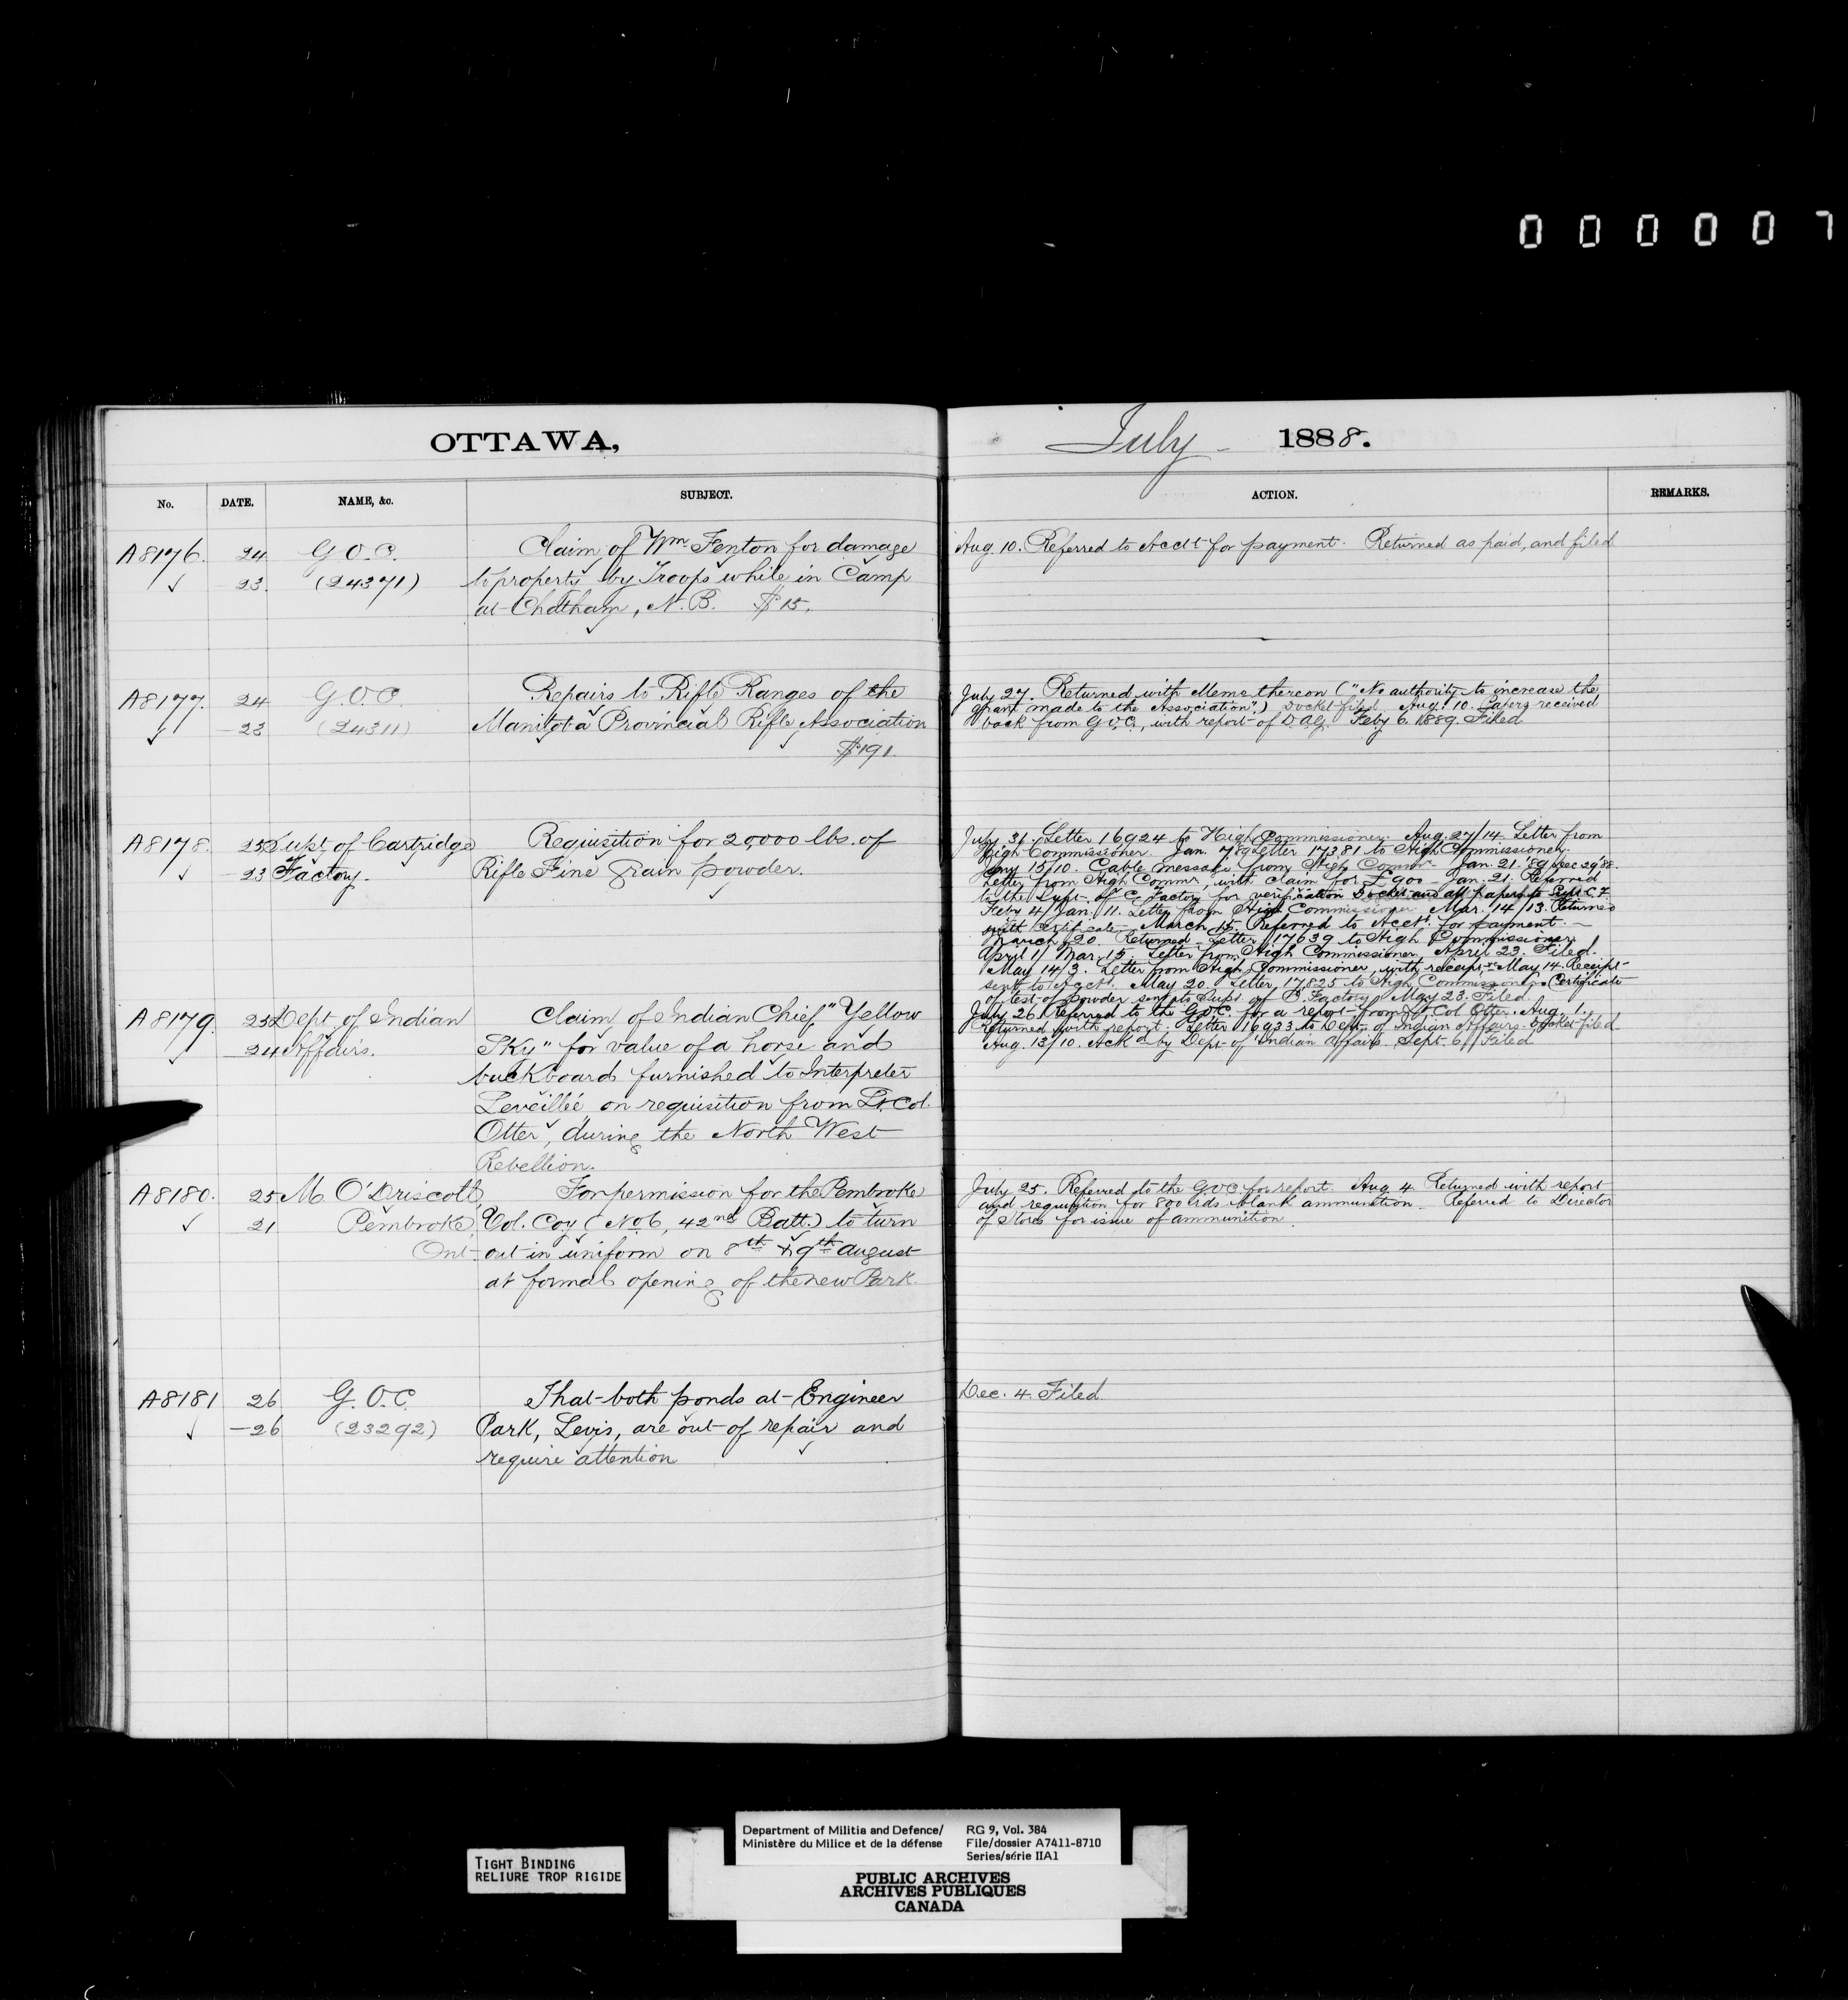 000007
OTTAWA, July 1888.
No. DATE. NAME, &c. SUBJECT. ACTION. REMARKS.
A8176. 24 G.O.C. Claim of Wm Fenton for damage
23. (24371) to property by Troops while in Camp
at Chatham, N.B. $15.
Aug. 10. Referred to Acct for payment. Returned as paid, and filed
A8177. 24 G.O.C. Repairs to Rifle Ranges of the
23 (24311) Manitoba Provincial Rifle Association
$191.
July 27. Returned with Memo thereon ("No authority to increase the
grant made to the Association".) Docket filed. Aug. 10. Papers received
back from G.O.C., with report of D.A.G. Feby 6. 1889. Filed
A8178. 25 Supt. of Cartridge Requisition for 20,000 lbs. of
23 Factory. Rifle Fine Grain powder.
July 31. Letter 16924 to High Commissioner. Aug. 27/14. Letter from
High Commissioner. Jan. 7 '89 Letter 17381 to High Commissioner.
Jany 15/10. Cable message from High Commr. Jan. 21. '89 Dec 29 '88.
Letter from High Commr, with claim for £900 – Jan. 21. Referred
to the Supt. of C. Factory for verification Docket and all papers to Supt C.F.
Feby 4/Jan. 11. Letter from High Commissioner. Mar. 14/13. Returned
with certificate. March 15. Referred to Acct. for payment. –
March 20. Returned. Letter 17639 to High Commissioner.
April 1/Mar. 15. Letter from High Commissioner. April 23. Filed.
May 14/3. Letter from High Commissioner, with receipt. May 14. Receipt
sent to Acct. May 20. Letter, 17825 to High Commissioner. Certificate
of test of powder sent to Supt. of C. Factory. May 23. Filed.
A8179. 25 Dept. of Indian Claim of Indian Chief "Yellow
24 Affairs. Sky" for value of a horse and
buckboard furnished to Interpreter
Leveillée on requisition from Lt. Col.
Otter, during the North West
Rebellion.
July 26. Referred to the G.O.C. for a report from Lt. Col. Otter. Aug. 1.
Returned with report. Letter 16933 to Dept. of Indian Affairs. Docket filed.
Aug. 13/10. Ackd by Dept. of Indian Affairs. Sept. 6. Filed
A8180. 25 M O'Driscoll, For permission for the Pembroke
21 Pembroke, Vol. Coy (No 6, 42nd Batt.) to turn
Ont. out in uniform on 8th & 9th August
at formal opening of the new Park.
July 25. Referred to the G.O.C. for report. Aug. 4. Returned with report
and requisition for 800 rds blank ammunition. Referred to Director
of Stores for issue of ammunition.
A8181 26 G.O.C. That both ponds at Engineer
26 (23292) Park, Levis, are out of repair and
require attention
Dec. 4. Filed.
TIGHT BINDING
RELIURE TROP RIGIDE
Department of Militia and Defence/ RG 9, Vol. 384
Ministère du Milice et de la défense File/dossier A7411-8710
Series/série IIA1
PUBLIC ARCHIVES
ARCHIVES PUBLIQUES
CANADA